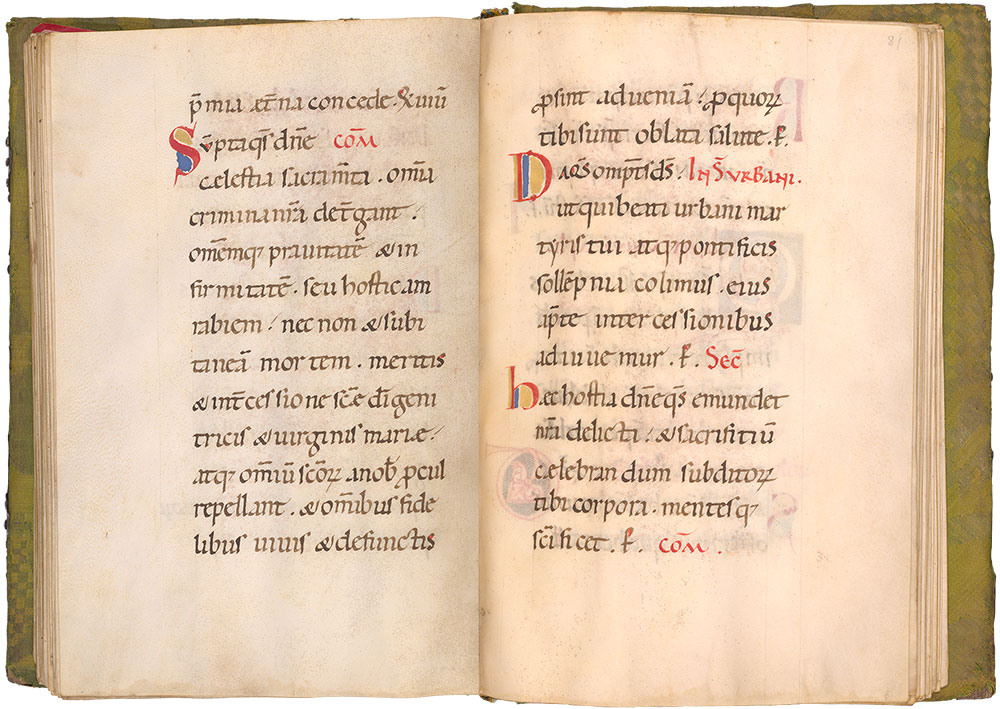 p̄mia æt̄na concede · & uiuū
Sūpta q̄s dn̄e cōm
cælestia sacram̄ta · om̄ia
crimina nr̄a det̄gant ·
om̄emq; prauitatē & in
firmitatē · seu hosticam
rabiem · nec non & subi
taneā mortem · meritis
& int̄cessione sc̄e dī geni
tricis & uirginis mariæ ·
atq; om̄iū sc̄oꝝ a nob̄ ꝓcul
repellant · & om̄ibus fide
libus uiuis & defunctis
81
ꝓsint ad ueniā · ꝓ quoꝝ
tibi sunt oblata salute · ꝑ.
Da q̄s omp̄s d̄s · IN S̄ URBANI ·
ut qui beati urbani mar
tyris tui atq; pontificis
sollēpnia colimus · eius
ap̄te intercessionibus
adiuuemur · ꝑ. Sec̄
hæc hostia dn̄e q̄s emundet
nr̄a delicta · & sacrifitiū
cælebrandum subditoꝝ
tibi corpora · mentesq;
sc̄ificet · ꝑ. cōm ·